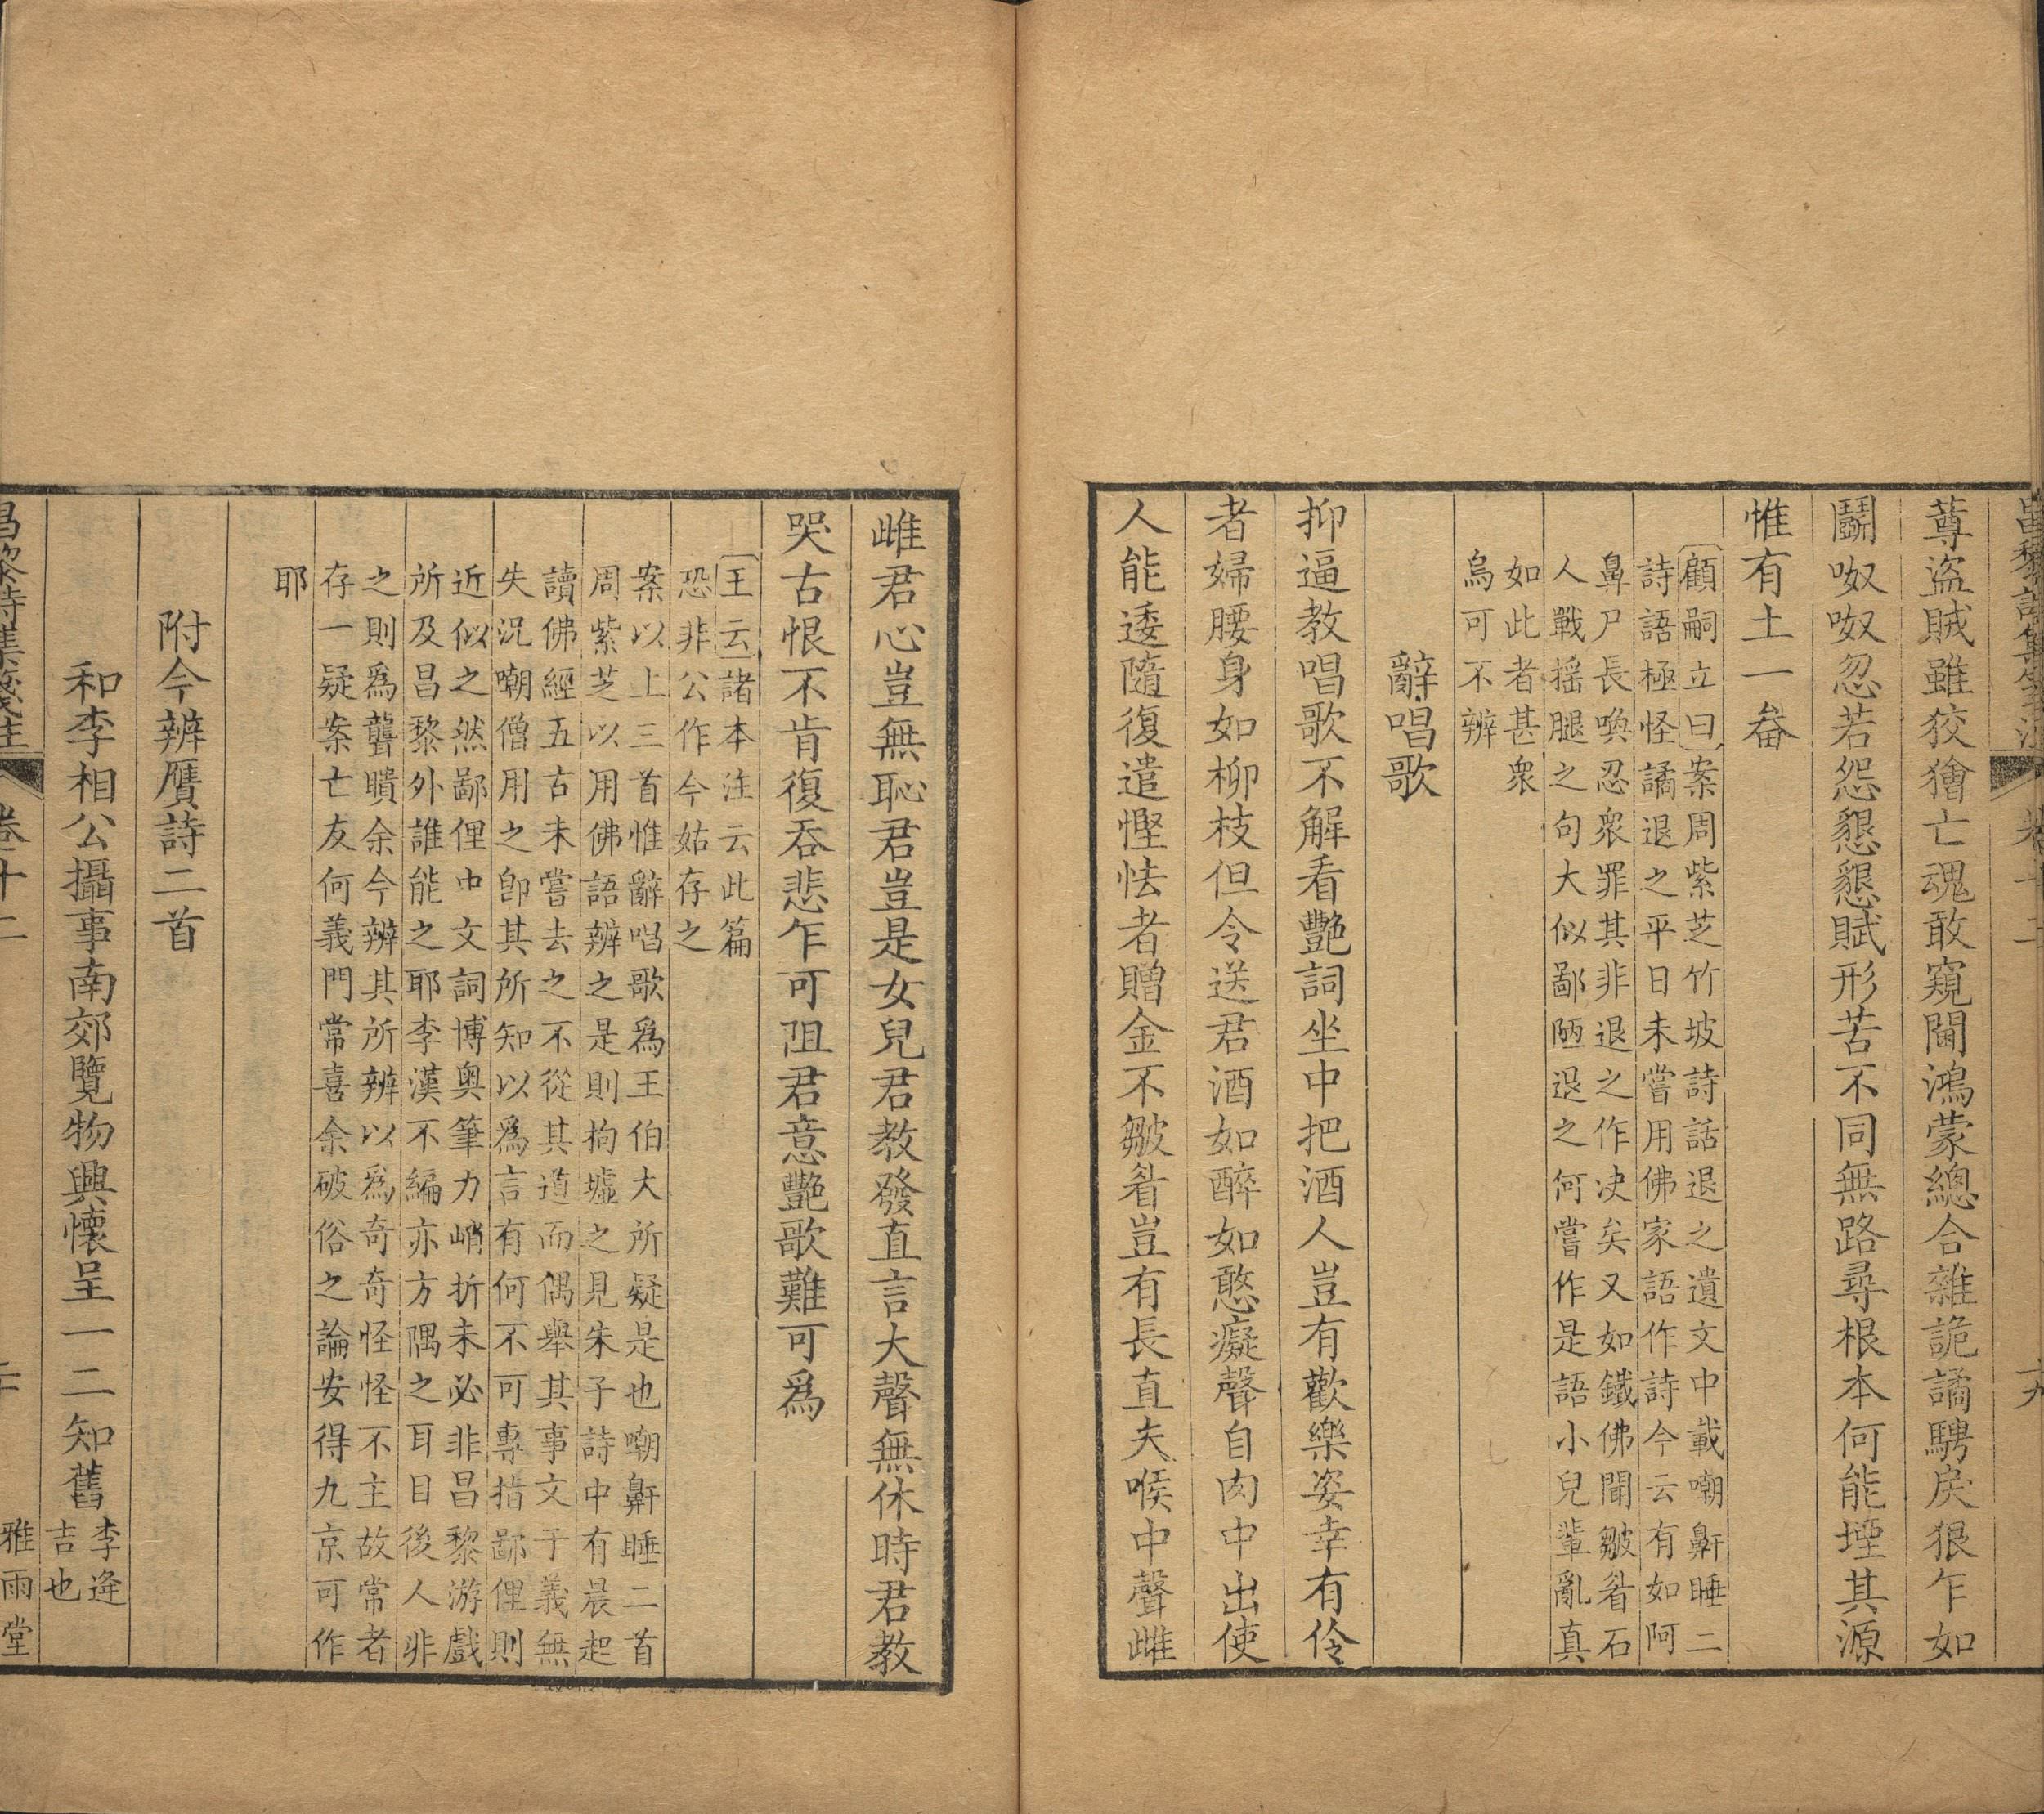 蕁盜賊雖狡獪亡魂敢窺閫鴻蒙總合雜詭譎騁戾狠乍如
鬬呶呶忽若怨懇懇賦形苦不同無路尋根本何能堙其源
惟有土一畚
顧嗣立曰案周紫芝竹坡詩話退之遺文中載嘲鼾睡二
詩語極怪譎退之平日未嘗用佛家語作詩今云有如阿
鼻尸長喚忍衆罪其非退之作决矣又如鐵佛聞皺眉石
人戰摇腿之句大似鄙陋退之何嘗作是語小兒輩亂真
如此者甚衆
烏可不辨
辭唱歌
抑逼教唱歌不解看艷詞坐中把酒人豈有歡樂姿幸有伶
者婦腰身如柳枝但令送君酒如醉如憨癡聲自肉中出使
人能逶隨復遣慳怯者贈金不皺眉豈有長直夫喉中聲雌
雌君心豈無恥君豈是女兒君教發直言大聲無休時君教
哭古恨不肯復吞悲乍可阻君意艷歌難可爲
王云諸本注云此篇
恐非公作今姑存之
案以上三首惟辭唱歌爲王伯大所疑是也嘲鼾睡二首
周紫芝以用佛語辨之是則拘墟之見朱子詩中有晨起
讀佛經五古未嘗去之不從其道而偶舉其事文于義無
失況嘲僧用之卽其所知以爲言有何不可專指鄙俚則
近似之然鄙俚中文詞博奥筆力峭折未必非昌黎游戲
所及昌黎外誰能之耶李漢不編亦方隅之耳目後人非
之則爲聾聵余今辨其所辨以爲奇奇怪怪不主故常者
存一疑案亡友何義門常喜余破俗之論安得九京可作
耶
附今辨贗詩二首
和李相公攝事南郊覽物興懷呈一二知舊
李逄
吉也
昌黎詩集箋注
卷十二
雅雨堂